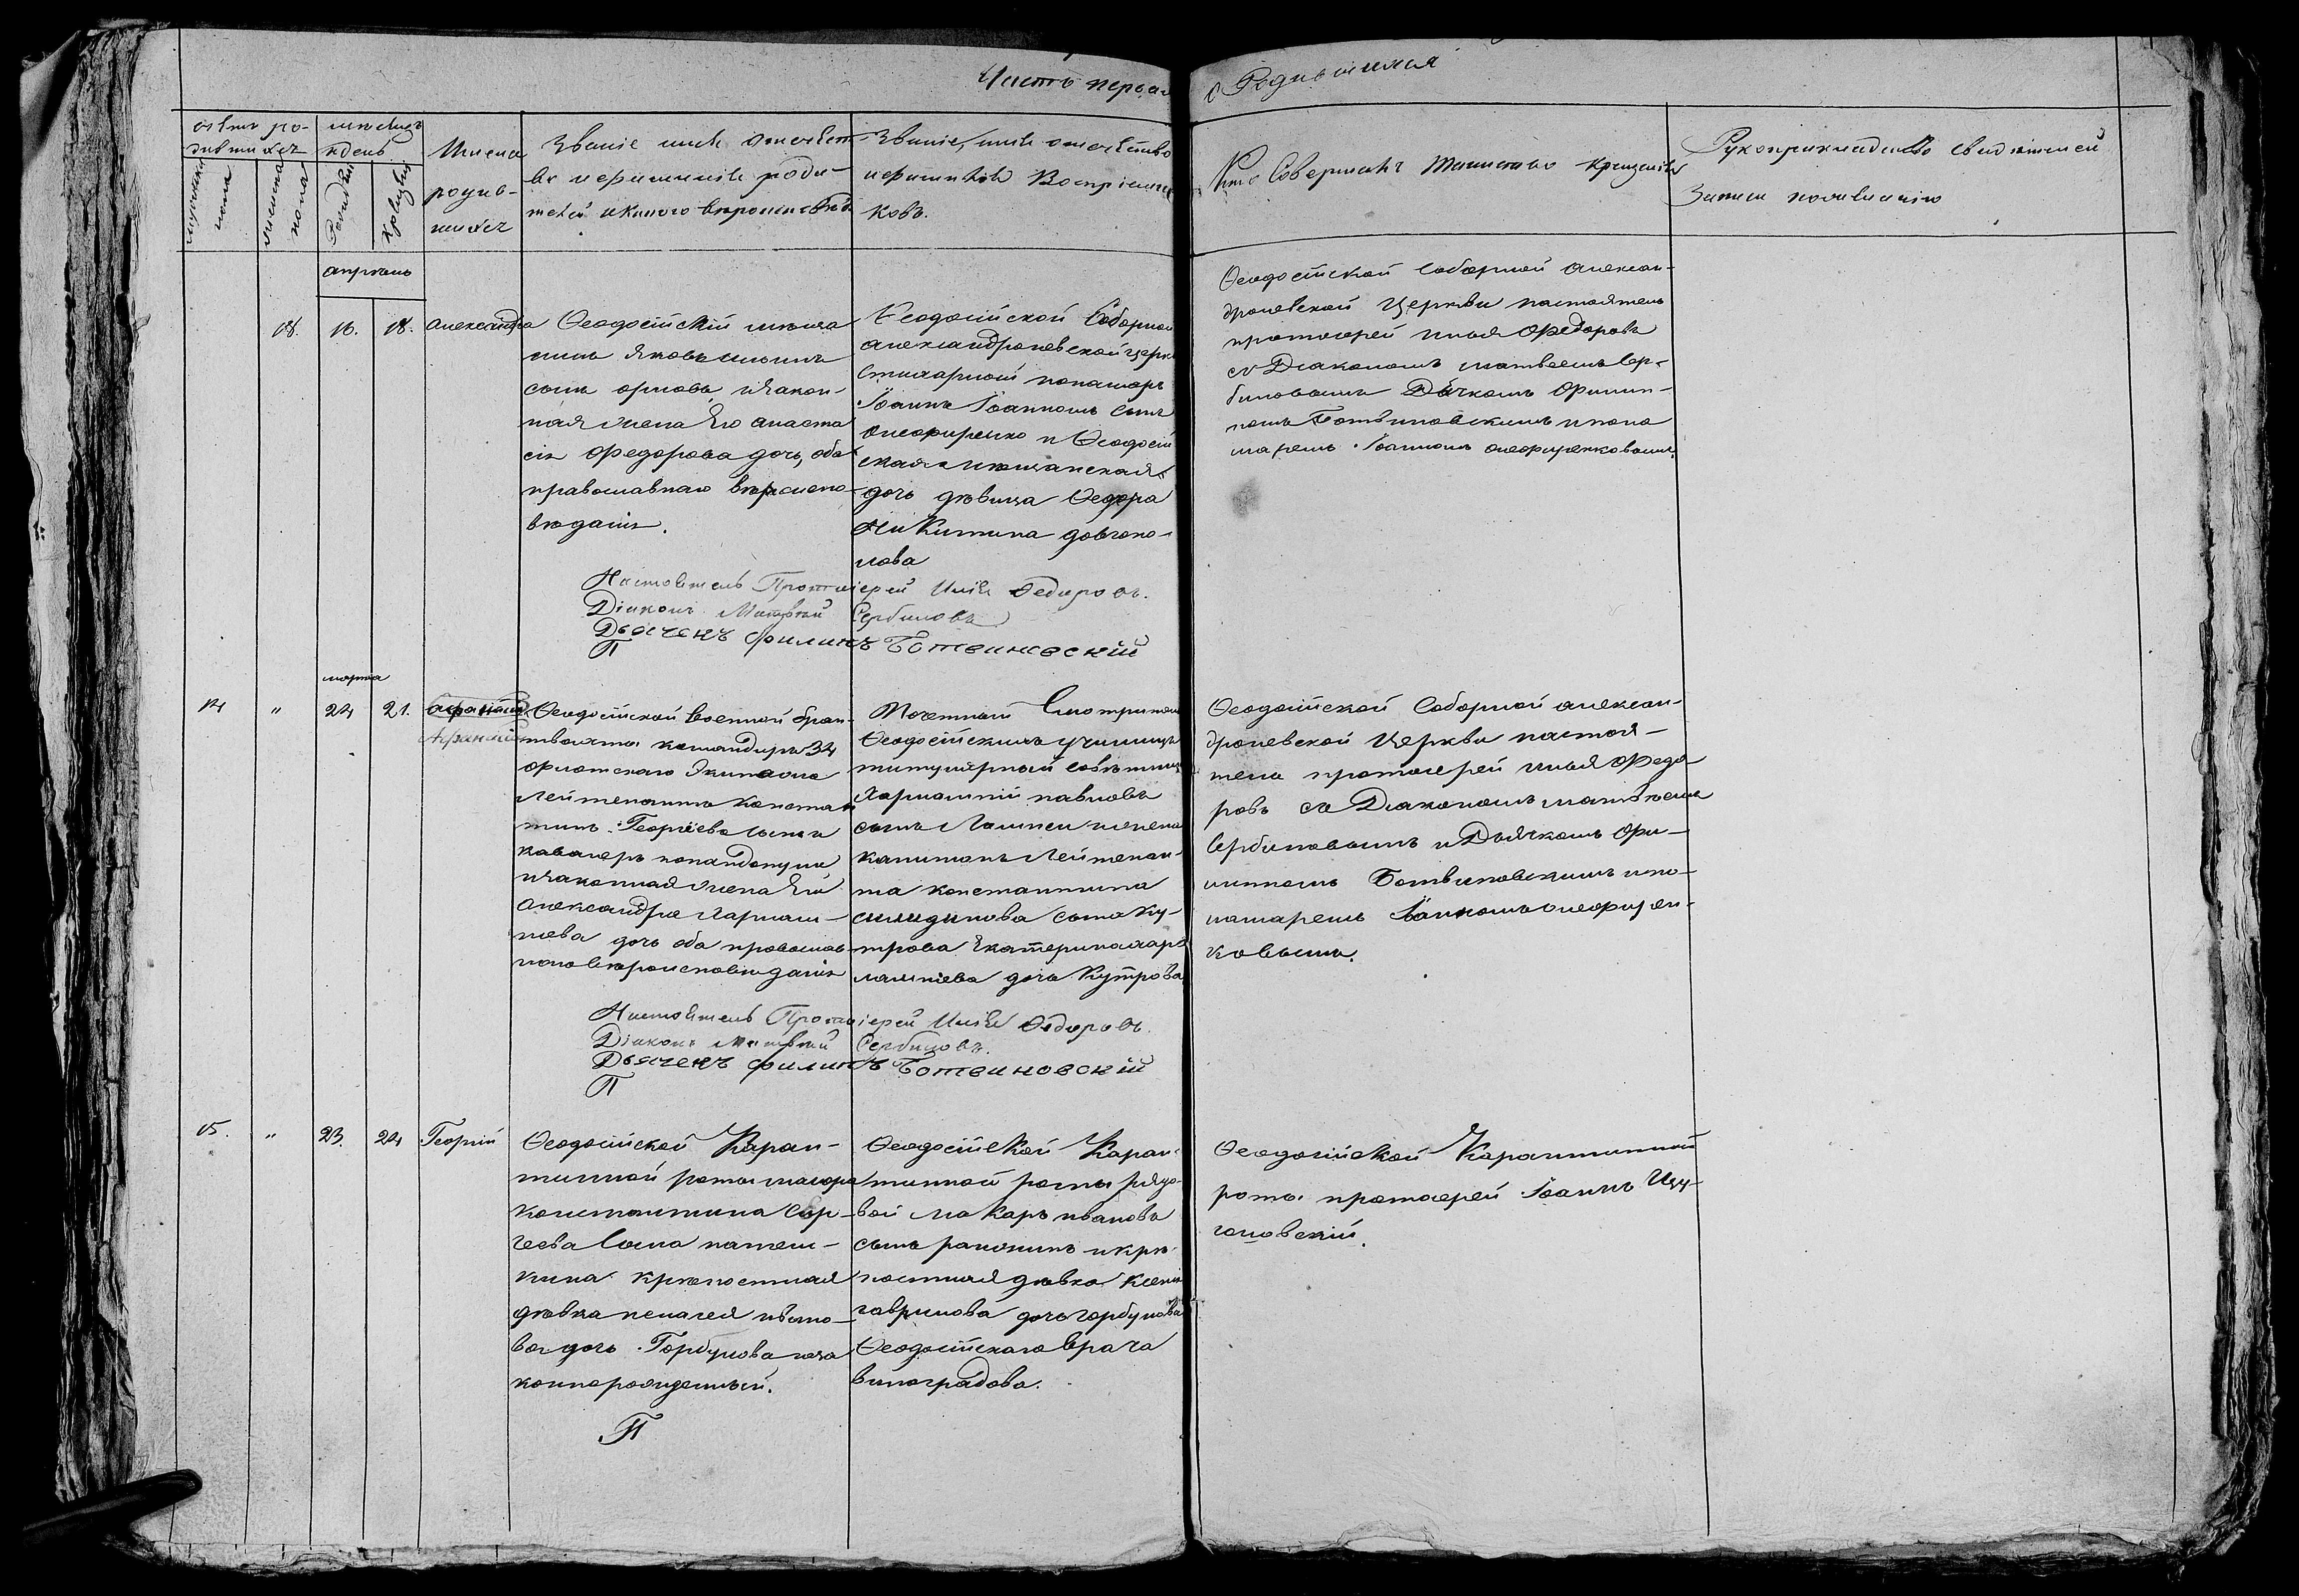 Часть первая
о Родившихся
Счетъ ро-
дившихся
мужеска
пола
женска
пола
месяцъ
и день
Рожденія
Крещенія
Имена
родив-
шихся
Званіе имя отчест-
во и фамилія роди-
телей и какого вероисповед.
Званіе, имя отчество
и фамилія Воспріемни
ковъ.
Кто Совершалъ таинство крещенія
Рукоприкладство свидѣтелей
Записи по желанію
апрѣль
18.
16.
18.
Александра
Ѳеодосійскій мѣща
нинъ Яковъ Ильинъ
сынъ орловъ, и закон-
ная жена Его анаста
сія Федорова дочь, оба
православнаго вѣроиспо-
вѣданія.
Ѳеодосійской Соборной
александроневской церкв
Стихарный понамарь
Іоаннъ Іоанновъ сынъ
Онофріенко и Ѳеодосій
ская мѣщанская
дочь дѣвица Ѳеодора
Никитина довгопо-
лова
Ѳеодосійской Соборной Алексан-
дроневской Церкви настоятель
протоіерей илья Федоровъ
съ Діакономъ матвеемъ Сер-
биновымъ Дячкомъ Филип-
помъ Ботвиновскимъ и пона
маремъ Іоанномъ онофріенковымъ.
Настоятель Протоіерей Илія Федоровъ.
Діаконъ Матвѣй Сербиновъ
Дьяченъ филипъ Ботвиновскій
П
марта
14
"
24
21.
Афанасій
Ѳеодосійской военной бран-
твахты командиръ 34
флотскаго Экипажа
Лейтенантъ Констан
тинъ Георгіева сынъ и
кавалеръ попандопуло
и законная жена Его
Александра Харлам-
піева дочь оба православ-
ного вѣроисповѣданія
Почетный Смотритель
Ѳеодосійскихъ училищъ
титулярный совѣтникъ
Харлампій павловъ
сынъ Лампси и жена
капитанъ Лейтенан-
та константина
спиридинова сына Ку-
трова Екатерина хар
лампіева дочь Кутрова
Ѳеодосійской Соборной алексан-
дроневской Церкви настоя-
тель протоіерей илья Федо
ровъ съ Діакономъ матвѣемъ
Сербиновымъ и Дьячкомъ Фи-
липпомъ Ботвиновскимъ и по-
намаремъ Іоанномъ онофріен-
ковымъ.
Настоятель Протоіерей Илія Федоровъ.
Діаконъ Матвѣй Сербиновъ.
Дьяченъ филипъ Ботвиновскій
П
15.
"
23.
24
Георгій
Ѳеодосійской Каран-
тинной роты маіора
константина Сер-
геева Сына
крѣпостная
дѣвка пелагея
дочь Горбунова неза
коннорожденный.
Ѳеодосійской Каран-
тинной роты рядо-
вой Макаръ ивановъ
сынъ и крѣ-
постная дѣвка Ксенія
гаврилова дочь горбунова
Ѳеодосійскаго врача
виноградова.
Ѳеодосійской Карантинной
роты протоіерей Іоаннъ
П